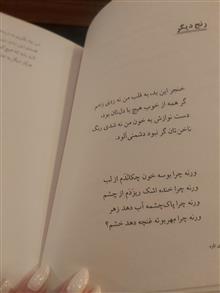 رنج دیگر
خنجر این بد، به قلب من نه زدی زخم
گر همه از خوب هیچ با دلتان بود،
دست نوازش به خون من نه شدی رنگ
ناخن‌تان گر نبود دشمنی‌آلود.
ورنه چرا بوسه خون چکاندم از لب
ورنه چرا خنده اشک ریزدم از چشم
ورنه چرا پاک‌چشمه آب دهد زهر
ورنه چرا مهربوته غنچه دهد خشم؟